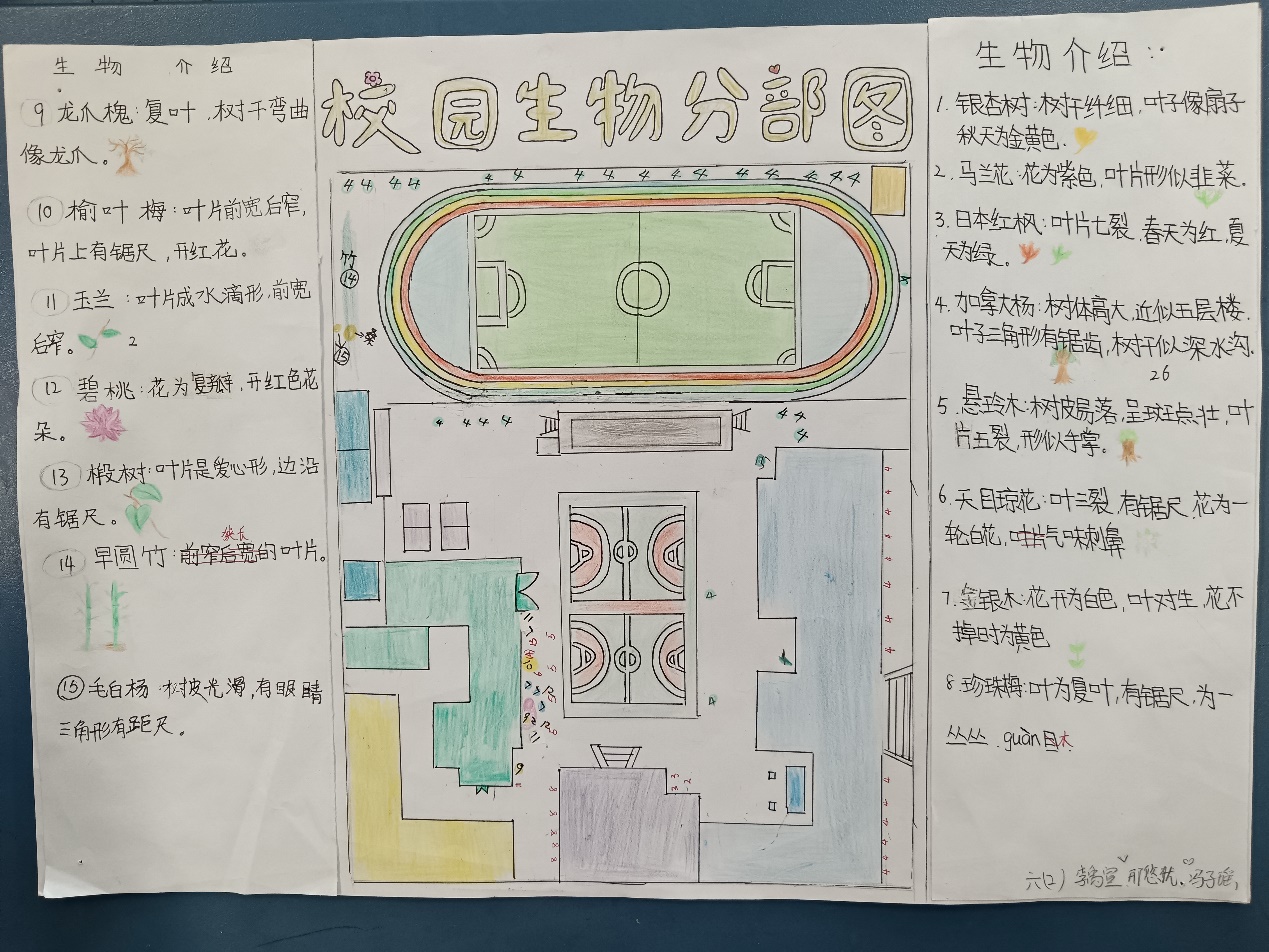 校园生物分部图
生物 介绍
9 龙爪槐:复叶,树干弯曲
像龙爪。
10 榆叶梅:叶片前宽后窄,
叶片上有锯尺,开红花。
11 玉兰:叶片成水滴形,前宽
后窄。 2
12 碧桃:花为复瓣,开红色花
朵。
13 椴树:叶片是爱心形,边沿
有锯尺。
14 早圆竹:前窄后宽的叶片。
15 毛白杨:树披光滑,有眼睛
三角形有距尺。
竹
14
15
生物介绍:
1. 银杏树:树干纤细,叶子像扇子
秋天为金黄色.
2. 马兰花:花为紫色,叶片形似韭菜.
3. 日本红枫:叶片七裂.春天为红,夏
天为绿。
4. 加拿大杨:树体高大,近似五层楼.
叶子三角形有锯齿,树干似深水沟.
26
5. 悬玲木:树皮易落,呈斑点壮,叶
片五裂,形似手掌。
6. 天目琼花:叶三裂,有锯尺,花为一
轮白花,叶片气味刺鼻
7. 金银木:花开为白色,叶对生,花不
掉时为黄色
8. 珍珠梅:叶为复叶,有锯尺,为一
丛丛.guàn目木
六(2)